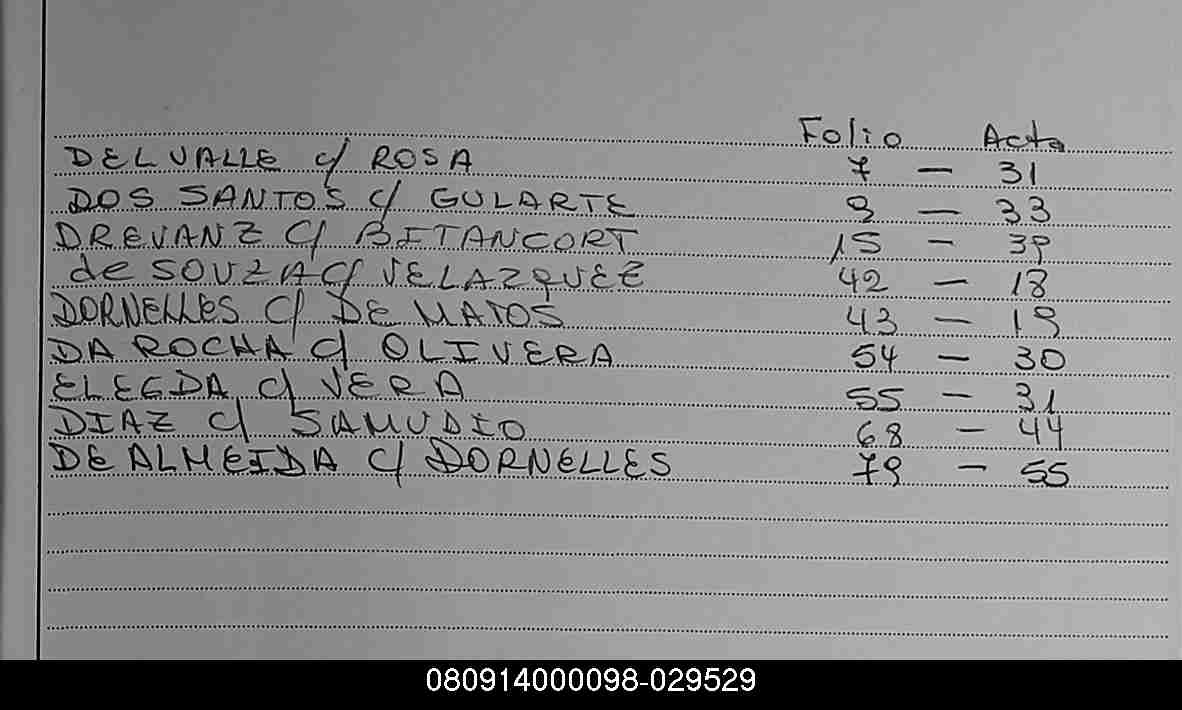 Folio Acta
DELVALLE c/ ROSA 7 — 31
DOS SANTOS c/ GULARTE 9 — 33
DREVANZ c/ BITANCORT 15 — 39
de SOUZA c/ VELAZQUEZ 42 — 18
DORNELLES c/ DE MATOS 43 — 19
DA ROCHA c/ OLIVERA 54 — 30
ELEGDA c/ VERA 55 — 31
DIAZ c/ SAMUDIO 68 — 44
DE ALMEIDA c/ DORNELLES 79 — 55
080914000098-029529